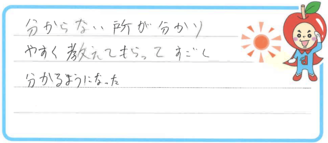 分からない所が分かり
やすく教えてもらってすごく
分かるようになった